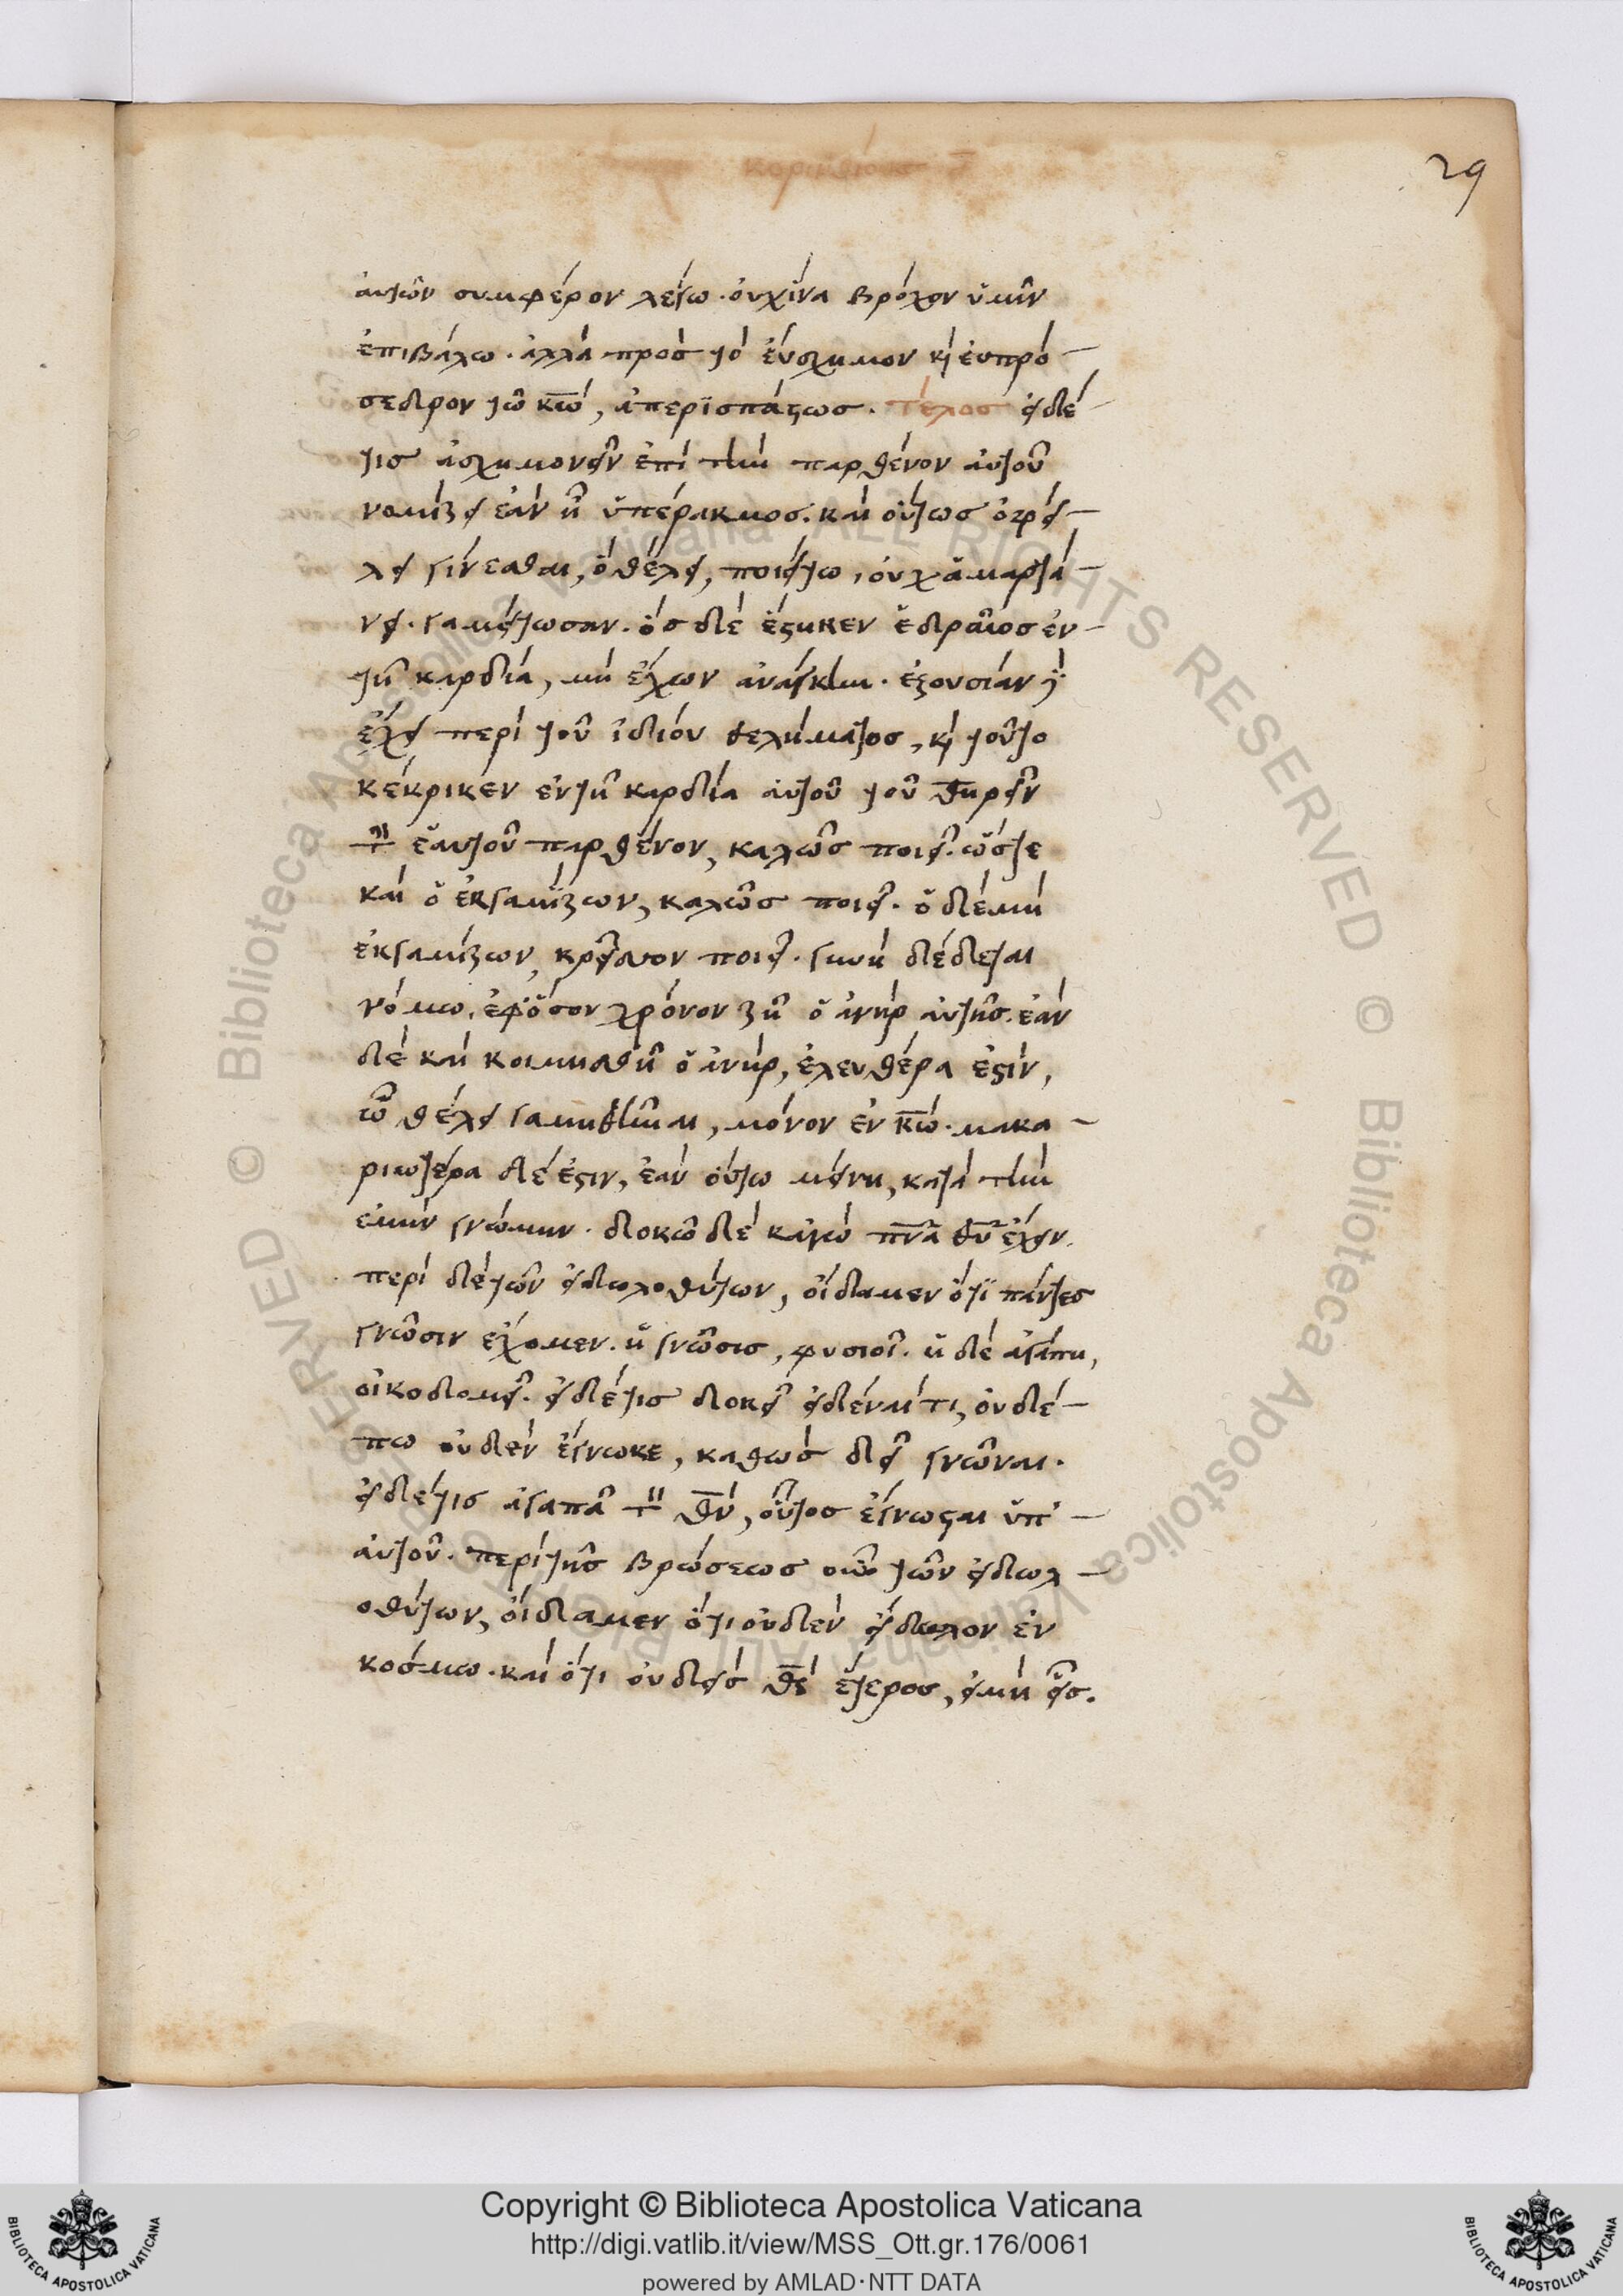 κορινθίους α
29
αυτῶν συμφέρον λέγω. οὐχ ἵνα βρόχον ὑμῖν
ἐπιβάλω. ἀλλὰ πρὸς τὸ εὔσχημον κ(αὶ) εὐπρό-
σεδρον τῶ κ̅ω̅, ἀπερϊσπάστως. τέλος εἰ δέ
τις ἀσχημονεῖν ἐπὶ τὴν παρθένον αὐτοῦ
νομίζει ἐὰν ἦ ὑπέρακμος. καὶ οὕτως ὀφεί-
λει γίνεσθαι, ὃ θέλει, ποιείτω, οὐχ ἁμαρτά-
νει. γαμείτωσαν. ὃς δὲ ἕστηκεν ἑδραῖος ἐν
τῆ καρδία, μὴ ἔχων ἀνάγκην. ἐξουσίαν δὲ
ἔχει περὶ τοῦ ἰδίου θελήματος, κ(αὶ) τοῦτο
κέκρικεν ἐν τῆ καρδία αὐτοῦ τοῦ τηρεῖν
τὴν ἑαυτοῦ παρθένον, καλῶς ποιεῖ. ὥστε
καὶ ὁ ἐκγαμίζων, καλῶς ποιεῖ. ὁ δὲ μὴ
ἐκγαμίζων, κρεῖσσον ποιεῖ. γυνὴ δέδεται
νόμω, ἐφ ὅσον χρόνον ζῆ ὁ ἀνὴρ αὐτῆς. ἐὰν
δὲ καὶ κοιμηθῆ ὁ ἀνήρ, ἐλευθέρα ἐστὶν,
ὧ θέλει γαμηθῆναι, μόνον ἐν κ̅ω̅. μακα-
ριωτέρα δέ ἐστιν, ἐὰν οὕτω μείνη, κατὰ τὴν
ἐμὴν γνώμην. δοκῶ δὲ κἀγὼ π̅ν̅α̅ θ̅υ̅ ἔχειν.
περὶ δὲ τῶν εἰδωλοθύτων, οἴδαμεν ὅτϊ πάντες
γνῶσιν ἔχομεν. ἡ γνῶσις, φυσιοῖ. ἡ δὲ ἀγάπη,
οἰκοδομεῖ. εἰ δέ τις δοκεῖ εἰδέναί τι, οὐδέ-
πω οὐδὲν ἔγνωκε, καθὼς δεῖ γνῶναι.
εἰ δέ τις ἀγαπᾶ τὸν θ̅ν̅, οὗτος ἔγνωσται ὑπ'
αὐτοῦ. περὶ τῆς βρώσεως οὖν τῶν εἰδωλ-
οθύτων, οἴδαμεν ὅτι οὐδὲν εἴδωλον ἐν
κόσμω. καὶ ὅτι οὐδεὶς θ̅ς̅ ἕτερος, εἰ μὴ εἷς.
Copyright © Biblioteca Apostolica Vaticana
http://digi.vatlib.it/view/MSS_Ott.gr.176/0061
powered by AMLAD·NTT DATA
BIBLIOTECA APOSTOLICA VATICANA
BIBLIOTECA APOSTOLICA VATICANA